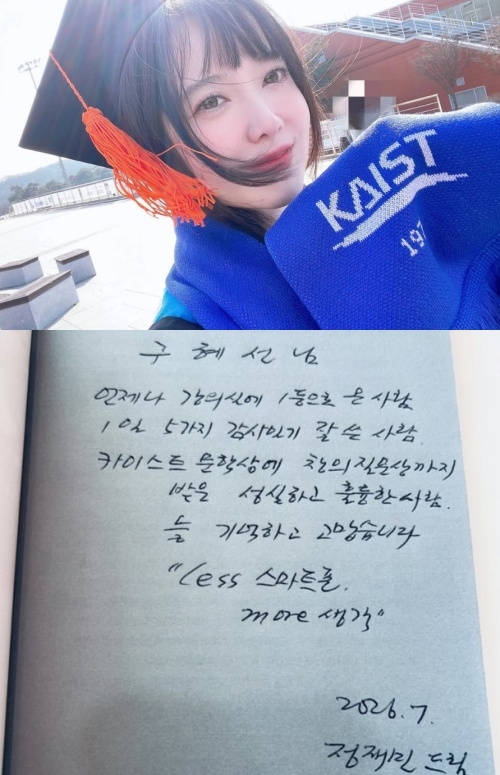 KAIST
197
구 혜 선 님
언제나 강의실에 1등으로 온 사람
1일 5가지 감사일기 잘 쓴 사람.
카이스트 문학상에 창의질문상까지
받은 성실하고 훌륭한 사람.
늘 기억하고 고맙습니다
"Less 스마트폰.
more 생각"
2026.7.
정재민 드림